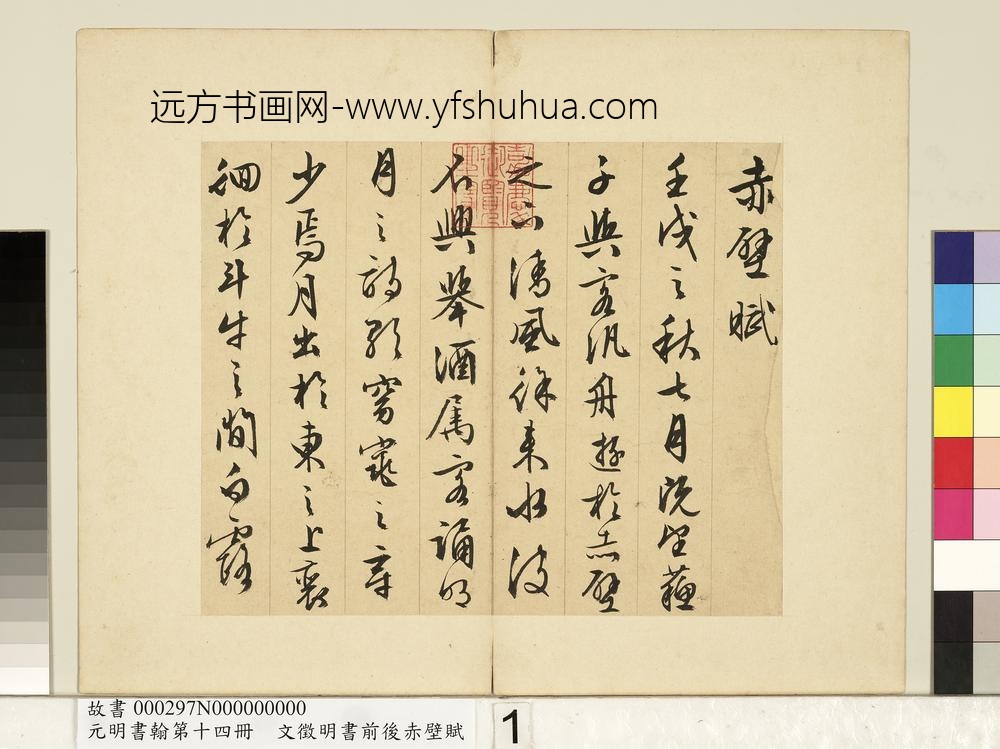 远方书画网-www.yfshuhua.com
赤壁賦
壬戌之秋七月既望蘇
子與客汎舟遊於赤壁
之下清風徐來水波
不興舉酒屬客誦明
月之詩歌窈窕之章
少焉月出於東之上裵
徊於斗牛之間白露
嘉慶御覽之寶
故書 000297N000000000
元明書翰第十四冊 文徵明書前後赤壁賦
1